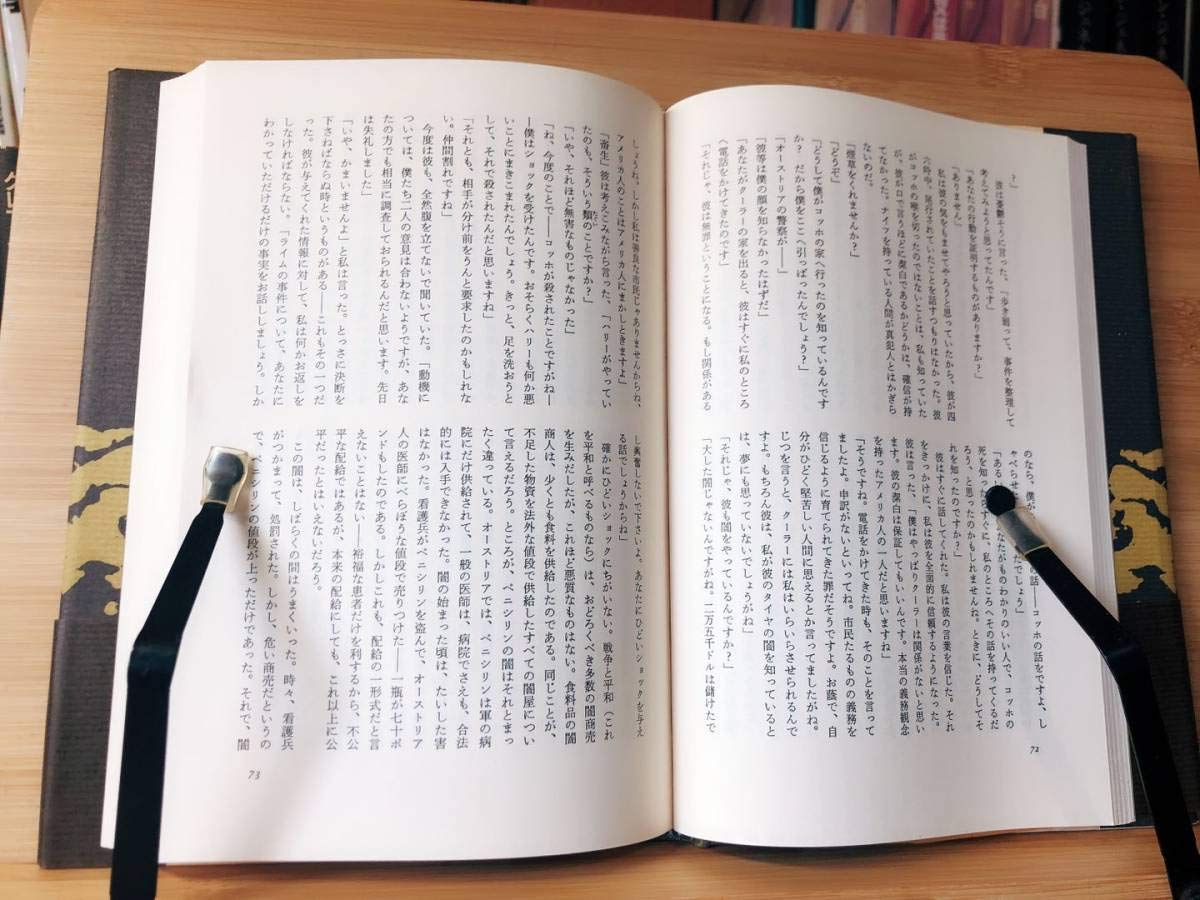 ?」
彼は憂鬱そうに言った。「歩き廻って、事件を整理して
考えてみようと思ってたんです」
「あなたの行動を証明するものがありますか?」
「ありません」
私は彼の気をもませてやろうと思っていたから、彼が四
六時中、尾行されていたことを話すつもりはなかった。彼
がコッホの喉を切ったのではないことは、私も知っていた
が、彼が口で言うほど潔白であるかどうかは、確信が持
てなかった。ナイフを持っている人間が真犯人とはかぎら
ないのだ。
「煙草をくれませんか?」
「どうぞ」
「どうして僕がコッホの家へ行ったのを知っているんです
か? だから僕をここへ引っぱったんでしょう?」
「オーストリアの警察が――」
「彼等は僕の顔を知らなかったはずだ」
「あなたがクーラーの家を出ると、彼はすぐに私のところ
へ電話をかけてきたのです」
「それじゃ、彼は無罪ということになる。もし関係がある
のなら、僕が
の話――コッホの話をですよ、し
ゃべらせ
たでしょう」
「ある
あなたがものわかりのいい人で、コッホの
死を知ったらすぐに、私のところへその話を持ってくるだ
ろう、と思ったのかもしれませんね。ときに、どうしてそ
れを知ったのですか?」
彼はすぐに話してくれた。私は彼の言葉を信じた。それ
をきっかけに、私は彼を全面的に信頼するようになった。
彼は言った、「僕はやっぱりクーラーは関係がないと思い
ます。彼の潔白は保証してもいいんです。本当の義務観念
を持ったアメリカ人の一人だと思いますね」
「そうですね。電話をかけてきた時も、そのことを言って
ましたよ。申訳がないといってね。市民たるものの義務を
信じるように育てられてきた罪だそうだ。お蔭で、自
分がひどく堅苦しい人間に思えるとか言ってましたがね。
じつを言うと、クーラーには私はいらいらさせられるんで
すよ。もちろん彼は、私が彼のタイヤの闇を知っていると
は、夢にも思っていないでしょうがね」
「それじゃ、彼も闇をやっているんですか?」
「大した闇じゃないんですがね。二万五千ドルは儲けたで
72
しょうね。しかし私は善良な市民じゃありませんからね、
アメリカ人のことはアメリカ人にまかしときますよ」
「畜生」彼は考えこみながら言った。「ハリーがやってい
たのも、そういう類のことですか?」
「いや、それほど無害なものじゃなかった」
「ね、今度のことで――コッホが殺されたことですがね―
―僕はショックを受けたんです。おそらくハリーも何か悪
いことにまきこまれたんでしょう。きっと、足を洗おうと
して、それで殺されたんだと思いますね」
「それとも、相手が分け前をうんと要求したのかもしれな
い。仲間割れですね」
今度は彼も、全然腹を立てないで聞いていた。「動機に
ついては、僕たち二人の意見は合わないようですが、あな
たの方でも相当に調査しておられるんだと思います。先日
は失礼しました」
「いや、かまいませんよ」と私は言った。とっさに決断を
下さねばならぬ時というものがある――これもその一つだ
った。彼が与えてくれた情報に対して、私は何かお返しを
しなければならない。「ライムの事件について、あなたに
わかっていただけるだけの事実をお話ししましょう。しか
し興奮しないで下さいよ。あなたにひどいショックを与え
る話でしょうからね」
確かにひどいショックにちがいない。戦争と平和(これ
を平和と呼べるものなら)は、おどろくべき多数の闇商売
を生みだしたが、これほど悪質なものはない。食料品の闇
商人は、少くとも食料を供給したのである。同じことが、
不足した物資を法外な値段で供給したすべての闇屋につい
て言えるだろう。ところが、ペニシリンの闇はそれとまっ
たく違っている。オーストリアでは、ペニシリンは軍の病
院にだけ供給されて、一般の医師は、病院でさえも、合法
的には入手できなかった。闇の始まった頃は、たいした害
はなかった。看護兵がペニシリンを盗んで、オーストリア
人の医師にべらぼうな値段で売りつけた――一瓶が七十ポ
ンドもしたのである。しかしこれも、配給の一形式だと言
えないことはない――裕福な患者だけを利するから、不公
平な配給ではあるが、本来の配給にしても、これ以上に公
平だったとはいえないだろう。
この闇は、しばらくの間はうまくいった。時々、看護兵
がつかまって、処罰された。しかし、危い商売だというの
で、ペニシリンの値段が上っただけであった。それで、闇
73